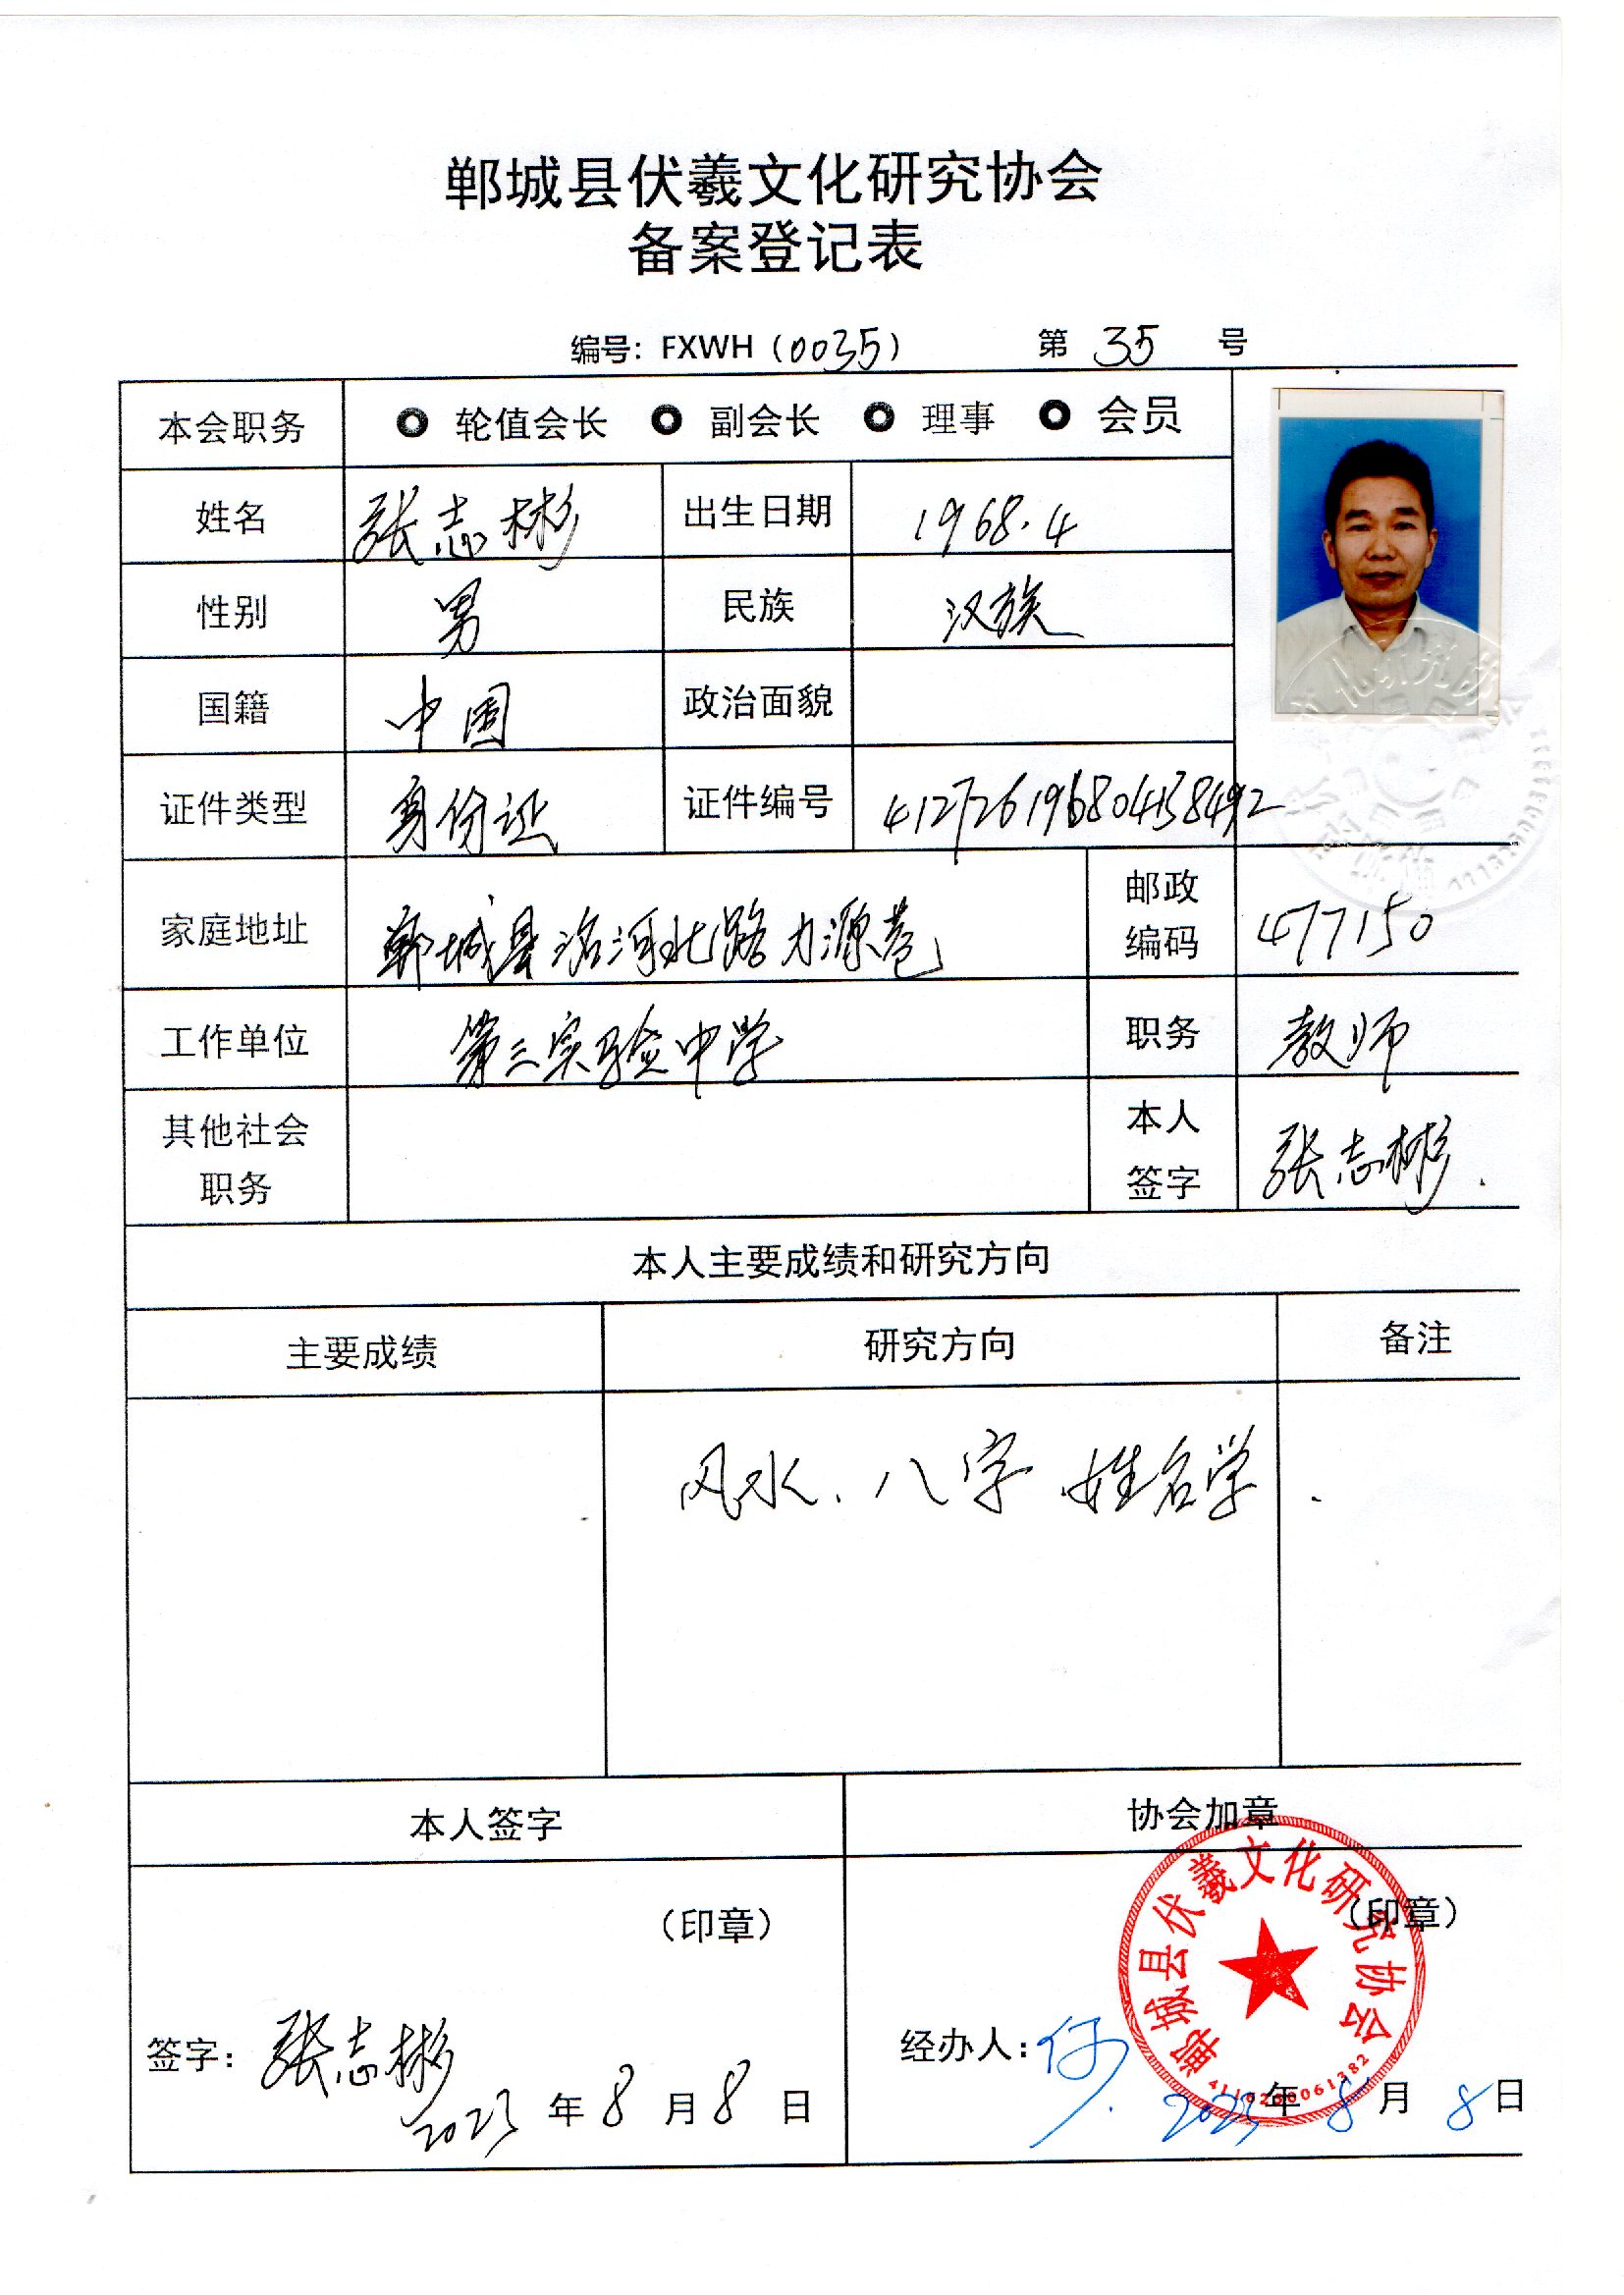 郸城县伏羲文化研究协会
备案登记表
编号：FXWH（0035） 第 35 号
本会职务 轮值会长 副会长 理事 会员
姓名 张志彬 出生日期 1968.4
性别 男 民族 汉族
国籍 中国 政治面貌
证件类型 身份证 证件编号 412726196804158492
家庭地址 郸城县洺河北路力源巷 邮政编码 477150
工作单位 第三实验中学 职务 教师
其他社会职务 本人签字 张志彬.
本人主要成绩和研究方向
主要成绩 研究方向 备注
风水、八字 姓名学.
本人签字 协会加章
（印章） （印章）
郸城县伏羲文化研究协会
签字：张志彬 经办人：何
2023 年 8 月 8 日 2023 年 8 月 8 日